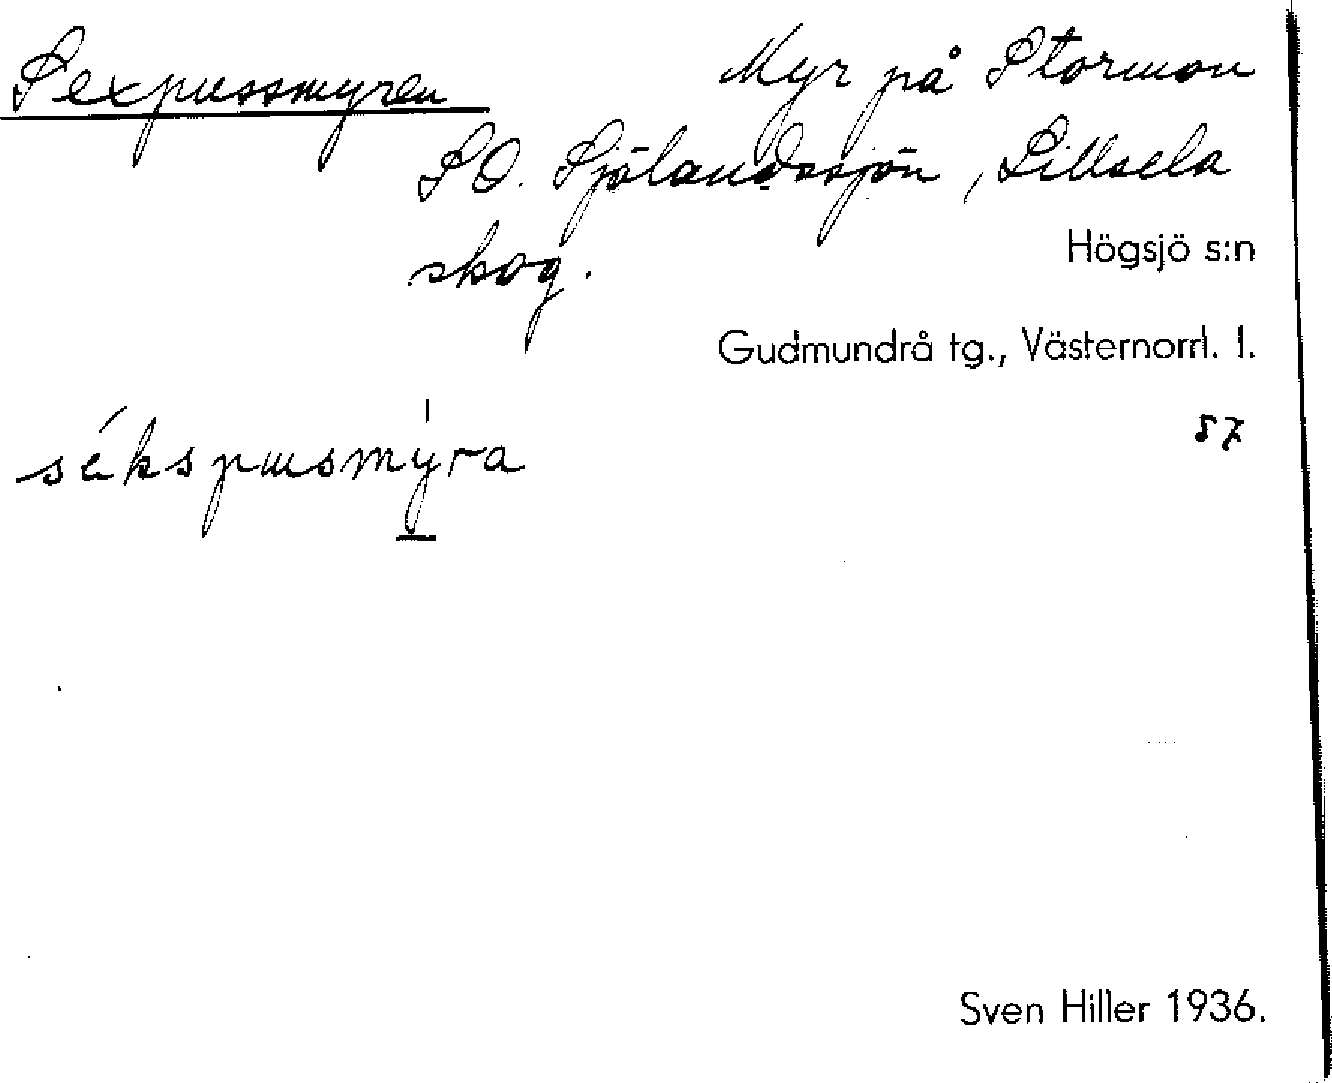 Sexpussmyren
Myr på Stormon
SO. Sjölandssjön, Lillsela
skog.
Högsjö s:n
Gudmundrå tg., Västernorrl. l.
57
sékspusmýra
Sven Hiller 1936.